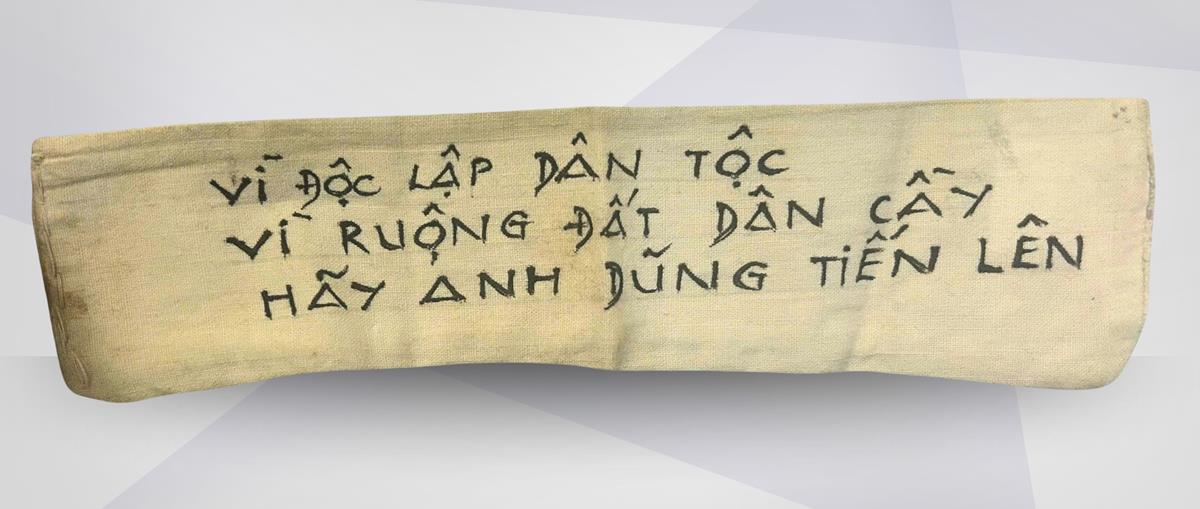 VÌ ĐỘC LẬP DÂN TỘC
VÌ RUỘNG ĐẤT DÂN CẦY
HÃY ANH DŨNG TIẾN LÊN